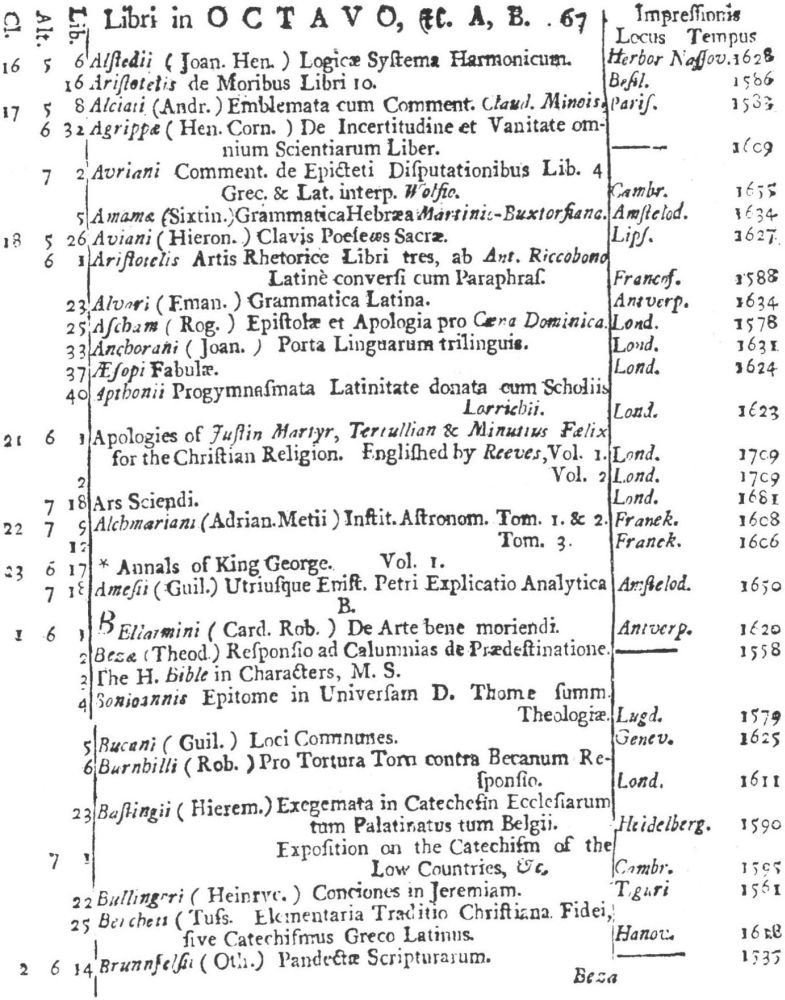 Cl. Alt. Lib. Libri in OCTAVO, &c. A, B. 67 Impressionis
Locus Tempus
16 5 6 Alſtedii (Joan. Hen.) Logicæ Syſtema Harmonicum. Herbor Naſſov. 1628
16 Ariſtotelis de Moribus Libri 10. Baſil. 1586
17 5 8 Alciati (Andr.) Emblemata cum Comment. Claud. Minois, Pariſ. 1583
6 32 Agrippæ (Hen. Corn.) De Incertitudine et Vanitate om-
nium Scientiarum Liber. —— 1609
7 2 Avriani Comment. de Epicteti Diſputationibus Lib. 4
Grec. & Lat. interp. Wolfio. Cambr. 1655
5 Amamæ (Sixtin.) Grammatica Hebræa Martinio-Buxtorfiana. Amſtelod. 1634
18 5 26 Aviani (Hieron.) Clavis Poeſeωs Sacræ. Lipſ. 1627
6 1 Ariſtotelis Artis Rhetorice Libri tres, ab Ant. Riccobono
Latinè converſi cum Paraphraſ. Francof. 1588
23 Alvari (Eman.) Grammatica Latina. Antverp. 1634
25 Aſcham (Rog.) Epiſtolæ et Apologia pro Cæna Dominica. Lond. 1578
33 Anchorani (Joan.) Porta Linguarum trilinguis. Lond. 1631
37 Æſopi Fabulæ. Lond. 1624
40 Apthonii Progymnaſmata Latinitate donata cum Scholiis
Lorrichii. Lond. 1623
21 6 1 Apologies of Juſtin Martyr, Tertullian & Minutius Fælix
for the Chriſtian Religion. Engliſhed by Reeves, Vol. 1. Lond. 1709
2 Vol. 2 Lond. 1709
7 18 Ars Sciendi. Lond. 1681
22 7 9 Alchmariani (Adrian. Metii) Inſtit. Aſtronom. Tom. 1. & 2. Franek. 1608
Tom. 3. Franek. 1606
23 6 17 * Annals of King George. Vol. 1.
7 18 Ameſii (Guil.) Utriuſque Epiſt. Petri Explicatio Analytica Amſtelod. 1650
B.
1 6 1 BEllarmini (Card. Rob.) De Arte bene moriendi. Antverp. 1620
2 Bezæ (Theod.) Reſponſio ad Calumnias de Prædeſtinatione. —— 1558
2 The H. Bible in Characters, M. S.
4 Bonioannis Epitome in Univerſam D. Thome ſumm.
Theologiæ. Lugd. 1579
5 Bucani (Guil.) Loci Communes. Genev. 1625
6 Burnhilli (Rob.) Pro Tortura Torti contra Becanum Re-
ſponſio. Lond. 1611
23 Baſtingii (Hierem.) Exegemata in Catecheſin Eccleſiarum
tum Palatinatus tum Belgii. Heidelberg. 1590
7 1 Expoſition on the Catechiſm of the
Low Countries, &c. Cambr. 1595
22 Bullingeri (Heinryc.) Conciones in Jeremiam. Tiguri 1561
25 Bercheti (Tuſs. Elementaria Traditio Chriſtiana Fidei,
ſive Catechiſmus Greco Latinus. Hanov. 1628
2 6 14 Brunnfelſii (Oth.) Pandectæ Scripturarum. —— 1535
Beza